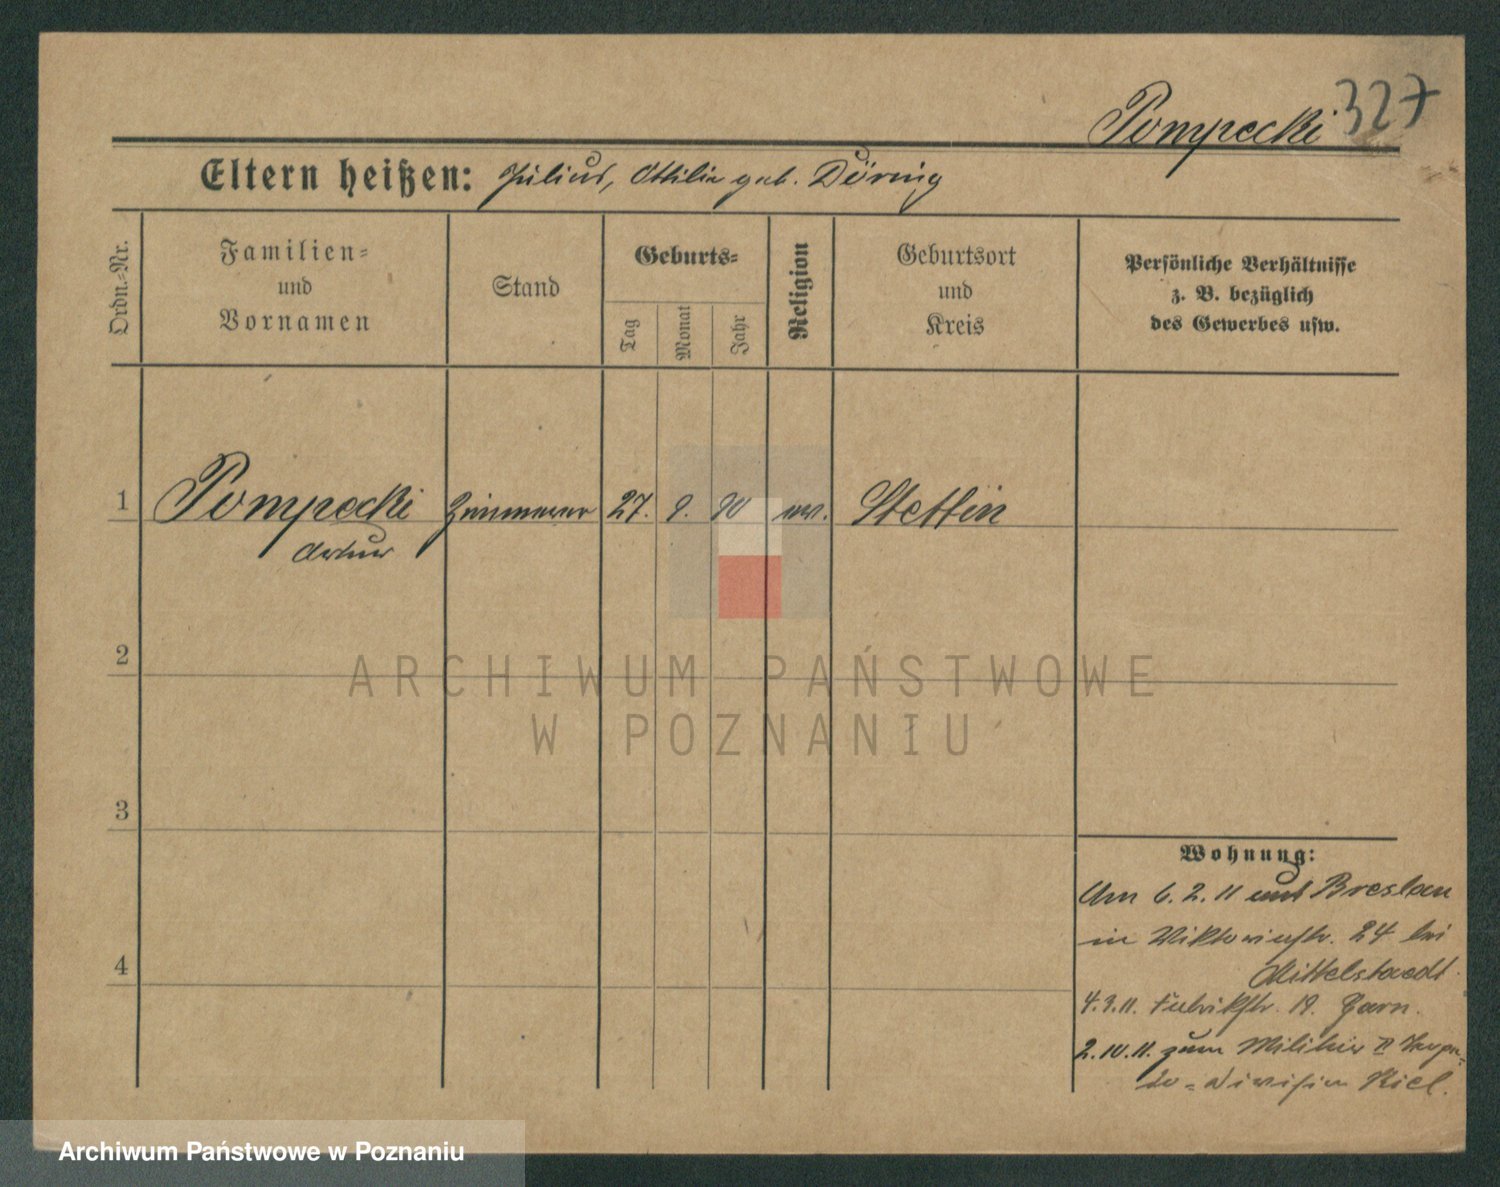 Pompecki 327
Eltern heißen: Julius, Ottilie geb. Döring
Ordn.-Nr.
Familien-
und
Vornamen
Stand
Geburts-
Tag
Monat
Jahr
Religion
Geburtsort
und
Kreis
Persönliche Verhältnisse
z. B. bezüglich
des Gewerbes usw.
1 Pompecki Zimmerer 27. 9. 90 ev. Stettin
Artur
2
ARCHIWUM PAŃSTWOWE
W POZNANIU
3
Wohnung:
Am 6.2.11 aus Breslau
in Viktoriastr. 24 bei
Mittelstaedt
4
4.3.11. Fabrikstr. 19.
2.10.11. zum Militär II Torpe-
do-Division Kiel.
Archiwum Państwowe w Poznaniu